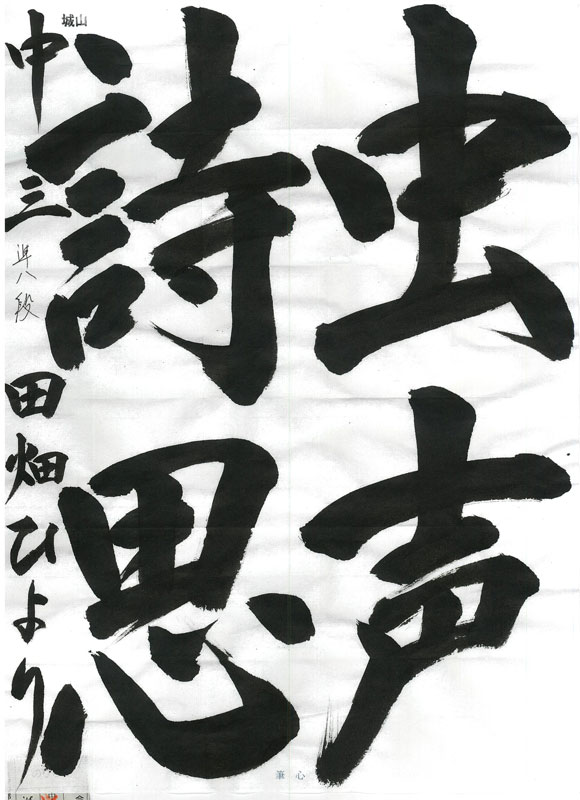 虫声
詩思
城山
中三 準八段 田畑ひより
心筆